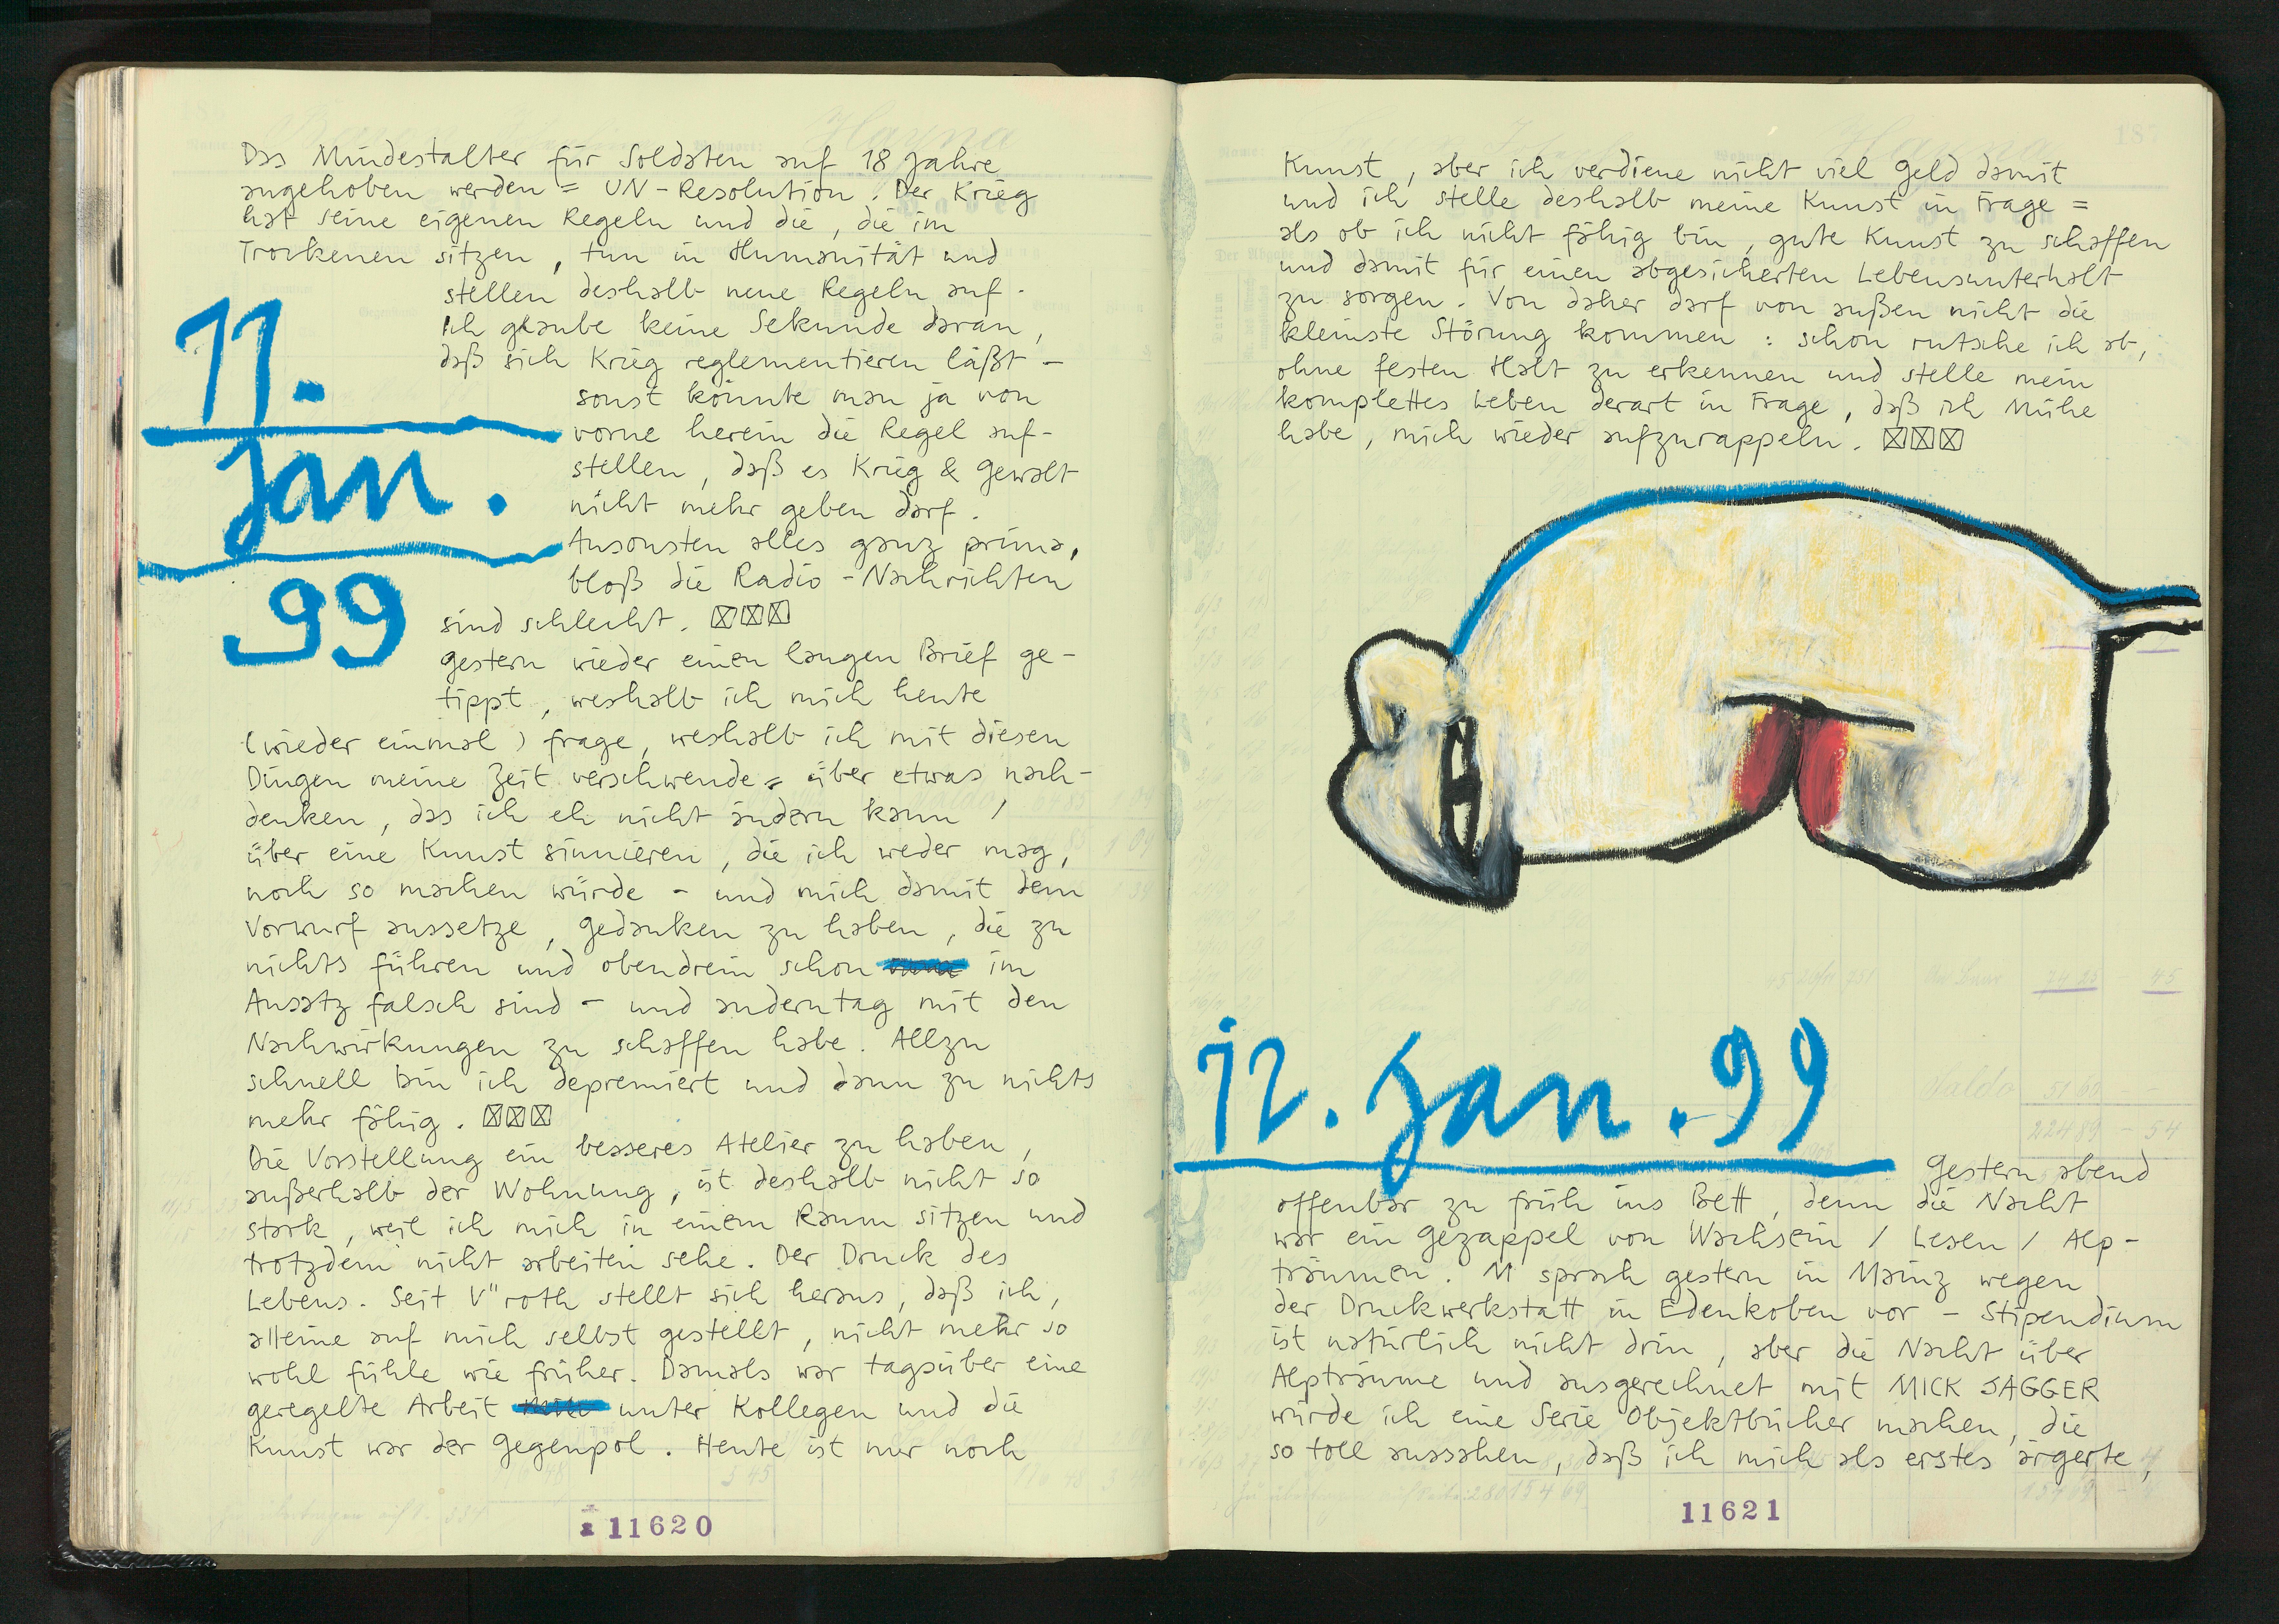 11.
Jan.
99
Das Mindestalter für Soldaten auf 18 Jahre
angehoben werden = UN-Resolution. Der Krieg
hat seine eigenen Regeln und die, die im
Trockenen sitzen, tun in Humanität und
stellen deshalb neue Regeln auf.
Ich glaube keine Sekunde daran,
daß sich Krieg reglementieren läßt -
sonst könnte man ja von
vorne herein die Regel auf-
stellen, daß es Krieg & Gewalt
nicht mehr geben darf.
Ansonsten alles ganz prima,
bloß die Radio-Nachrichten
sind schlecht.
Gestern wieder einen langen Brief ge-
tippt, weshalb ich mich heute
(wieder einmal) frage, weshalb ich mit diesen
Dingen meine Zeit verschwende = über etwas nach-
denken, das ich eh nicht ändern kann /
über eine Kunst sinnieren, die ich weder mag,
noch so machen würde - und mich damit dem
Vorwurf aussetze, Gedanken zu haben, die zu
nichts führen und obendrein schon im
Ansatz falsch sind - und anderntag mit den
Nachwirkungen zu schaffen habe. Allzu
schnell bin ich depremiert und dann zu nichts
mehr fähig.
Die Vorstellung ein besseres Atelier zu haben,
außerhalb der Wohnung, ist deshalb nicht so
stark, weil ich mich in einem Raum sitzen und
trotzdem nicht arbeiten sehe. Der Druck des
Lebens. Seit V"roth stellt sich heraus, daß ich,
alleine auf mich selbst gestellt, nicht mehr so
wohl fühle wie früher. Damals war tagsüber eine
geregelte Arbeit unter Kollegen und die
Kunst war der Gegenpol. Heute ist nur noch
11620
Kunst, aber ich verdiene nicht viel Geld damit
und ich stelle deshalb meine Kunst in Frage =
als ob ich nicht fähig bin, gute Kunst zu schaffen
und damit für einen abgesicherten Lebensunterhalt
zu sorgen. Von daher darf von außen nicht die
kleinste Störung kommen: schon rutsche ich ab,
ohne festen Halt zu erkennen und stelle mein
komplettes Leben derart in Frage, daß ich Mühe
habe, mich wieder aufzurappeln.
12. Jan. 99
Gestern abend
offenbar zu früh ins Bett, denn die Nacht
war ein Gezappel von Wachsein / Lesen / Alp-
träumen. M sprach gestern in Mainz wegen
der Druckwerkstatt in Edenkoben vor - Stipendium
ist natürlich nicht drin, aber die Nacht über
Alpträume und ausgerechnet mit MICK JAGGER
würde ich eine Serie Objektbücher machen, die
so toll aussahen, daß ich mich als erstes ärgerte,
11621